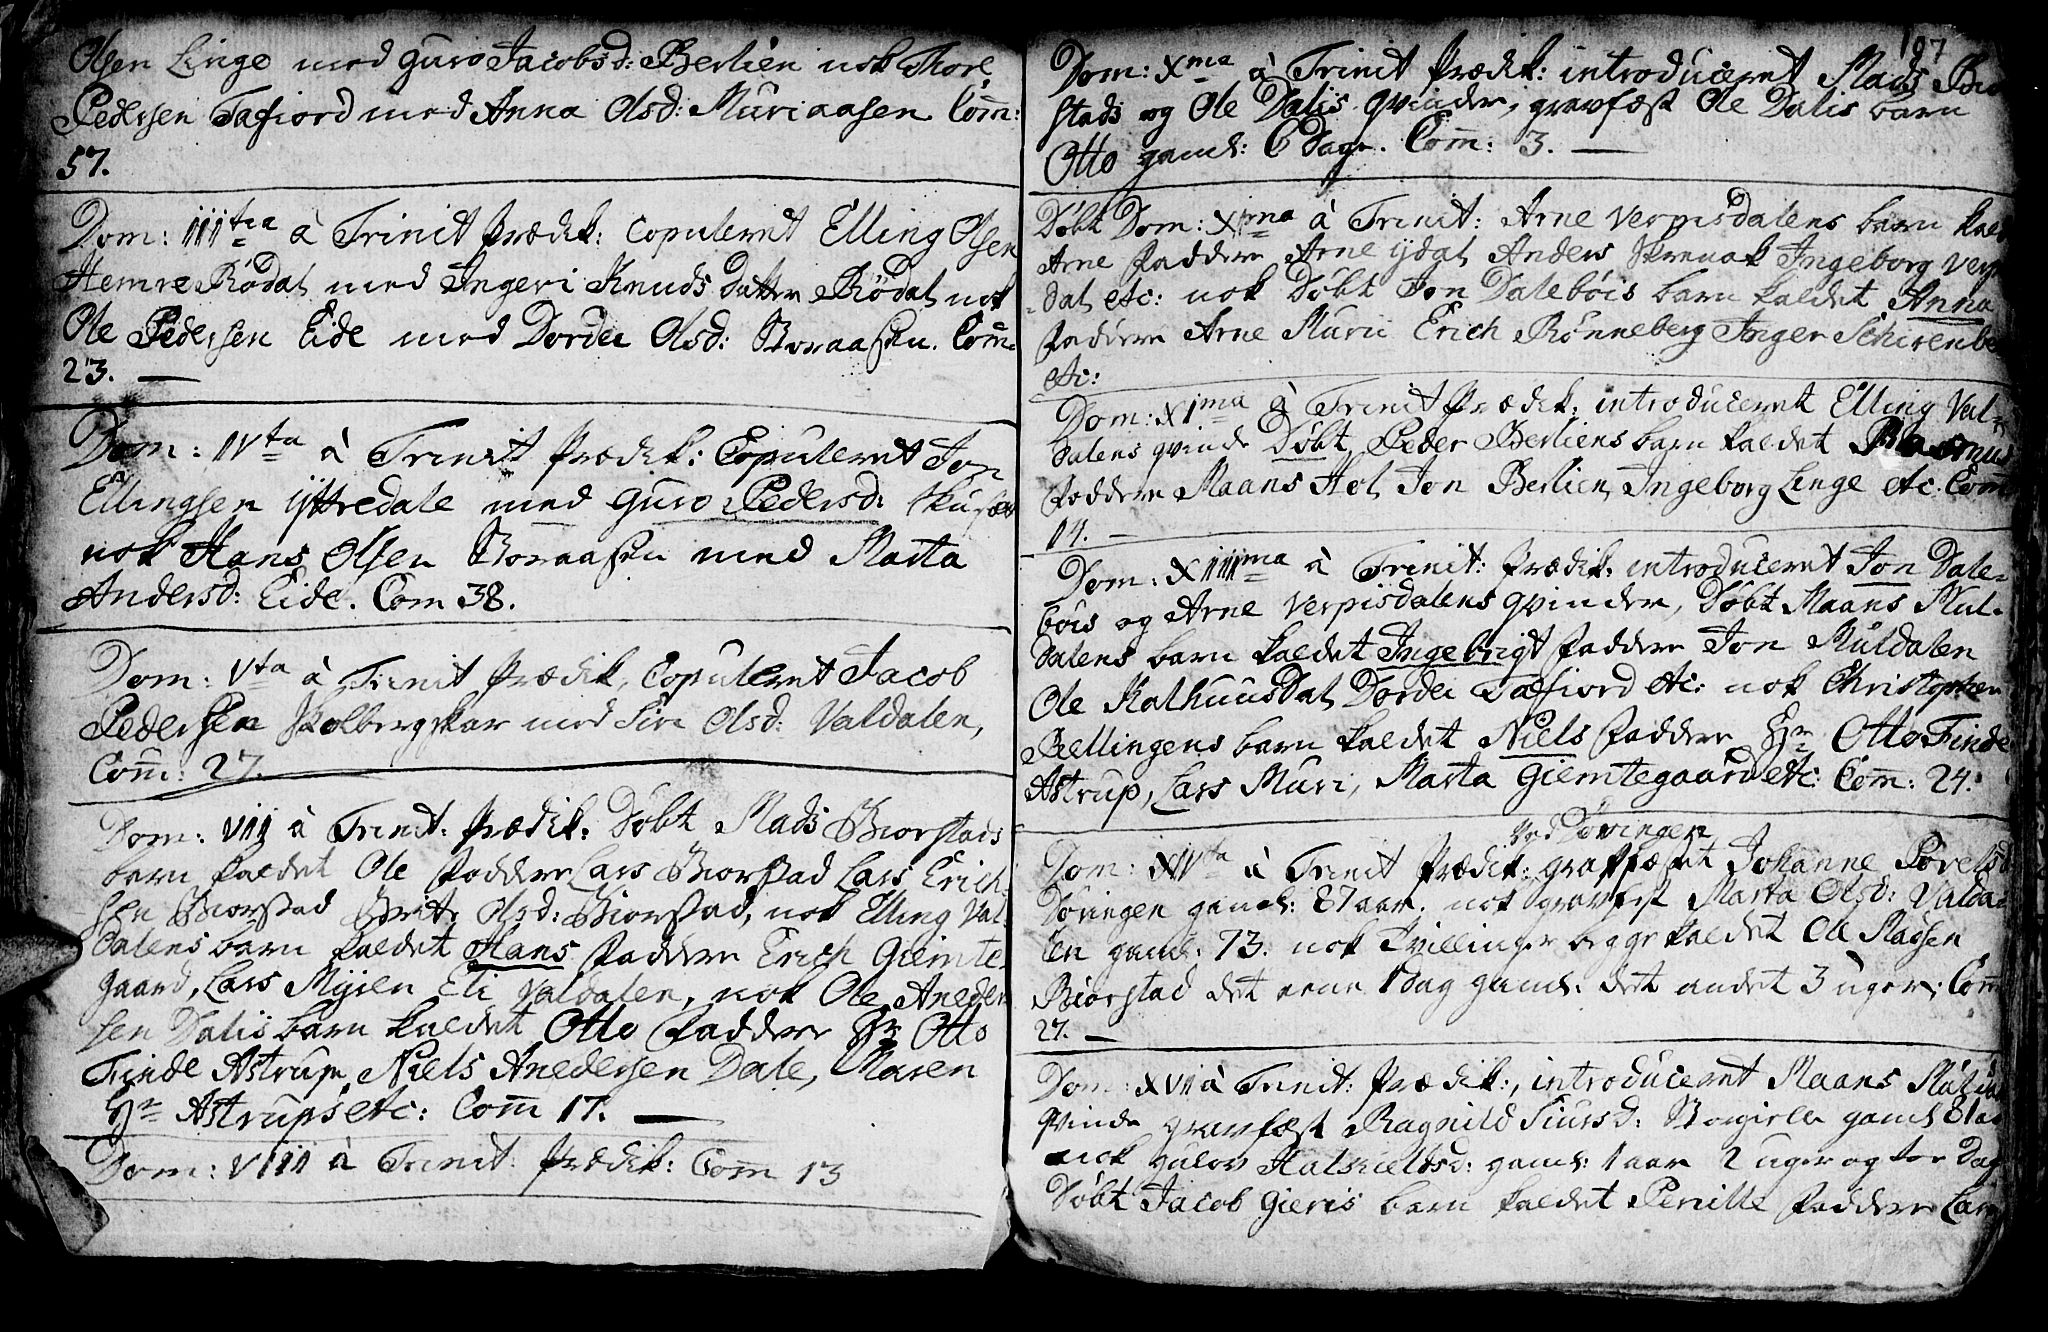 Olsen Linge med Guro Jacobsd: Berlien nok Thore
Pedersen Tafiord med Anna Olsd: Muriaasen Com̄:
57.
Dom: IIItia à Trinit Prædik: Copuleret Elling Olsen
Hemre Rödal med Ingeri Knuds Datter Rödal nok
Ole Pedersen Eide med Dordei Olsd: Noraasen. Com̄
23. —
Dom: IVta à Trinit Prædik: Copuleret Jon
Ellingsen Yttredale med Guro Pedersd:
nok Hans Olsen Noraasen med Marta
Andersd: Eide. Com 38.
Dom: Vta à Trinit Prædik, Copuleret Jacob
Pedersen Kolbergskar med Siri Olsd: Valdalen,
Com̄: 27.
Dom: VII à Trinit: Prædik: Döbt Mads Biorstads
barn kaldet Ole Faddere Lars Biorstad Lars Erich-
sen Biorstad Brit Olsd: Biorstad, nok Elling Val-
dalens barn kaldet Hans Faddere Erich Giemte-
gaard, Lars Myren Eli Valdalen, nok Ole Aneder
sen Dalis barn kaldet Otto Faddere Hr Otto
Finde Astrup, Niels Anedersen Dale, Maren
Hr Astrups etc: Com̄ 17. —
Dom: VIII à Trinit: Prædik: Com̄ 13
107
Dom: Xma à Trinit Prædik: introduceret Mads Bior
stads og Ole Dalis Qvinder, gravfæst Ole Dalis barn
Otto gaml: 6 dage. Com̄: 3. —
Döbt Dom: XIma à Trinit: Arne Verpisdalens barn kald
Arne Faddere Arne Ydal Anders Skrenak Ingeborg Verp
dal etc: nok Döbt Jon Dalebóis barn kaldet Anna
Faddere Arne Murii Erich Rönneberg Inger
etc:
Dom: XIma à Trinit Prædik: introduceret Elling Val-
dalens qvinde Döbt Peder Berliens barn kaldet Rasmus
Faddere Maans Hol Jon Berlien, Ingeborg Linge etc. Com̄
14. —
Dom: XIIIma à Trinit: Prædik: introduceret Jon Dale-
bóis og Arne Verpisdalens Qvinder, Döbt Maans Mul-
dalens barn kaldet Ingebrigt Faddere Jon Muldalen
Ole Kalhuusdal Dordei Tafiord etc: nok Christopher
Rellingens barn kaldet Niels Faddere Hr Otto Finde
Astrup, Lars Muri, Marta Giemtegaard etc: Com̄: 24.
ved Dövingen
Dom: XVta à Trinit Prædik: gravfæstet Johanne Povelsd
Dövingen gaml: 87 aar. nok gravfæst Marta Olsd: Valda
len gaml: 73. nok Tvillinger begge kaldet Ole Madsen
Biorstad det eene 1 Dag gaml: det andet 3 uger; Com̄
27. —
Dom: XVII à Trinit: Prædik:, introduceret Maans Muldal
Qvinde gravfæst Ragnild Siursd: gaml 81 aar
nok Halskieldsd: gaml: 1 aar 2 uger og to Dag
Döbt Jacob Gieris barn kaldet Pernille Faddere Lars